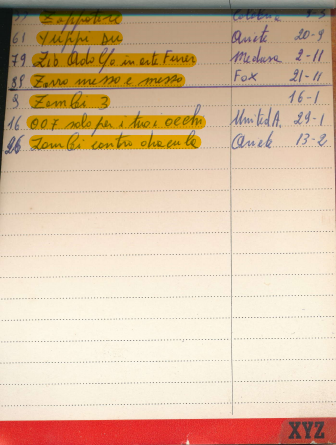 Zappatore 8-5
61 Yuppi Du 20-9
79 Zio Adolfo in arte Furer Medusa 2-11
88 Zorro mezzo e mezzo Fox 21-11
9 Zombi 3 16-1
16 007 solo per i tuoi occhi United A. 29-1
26 Zombi contro dracula 13-2
XYZ